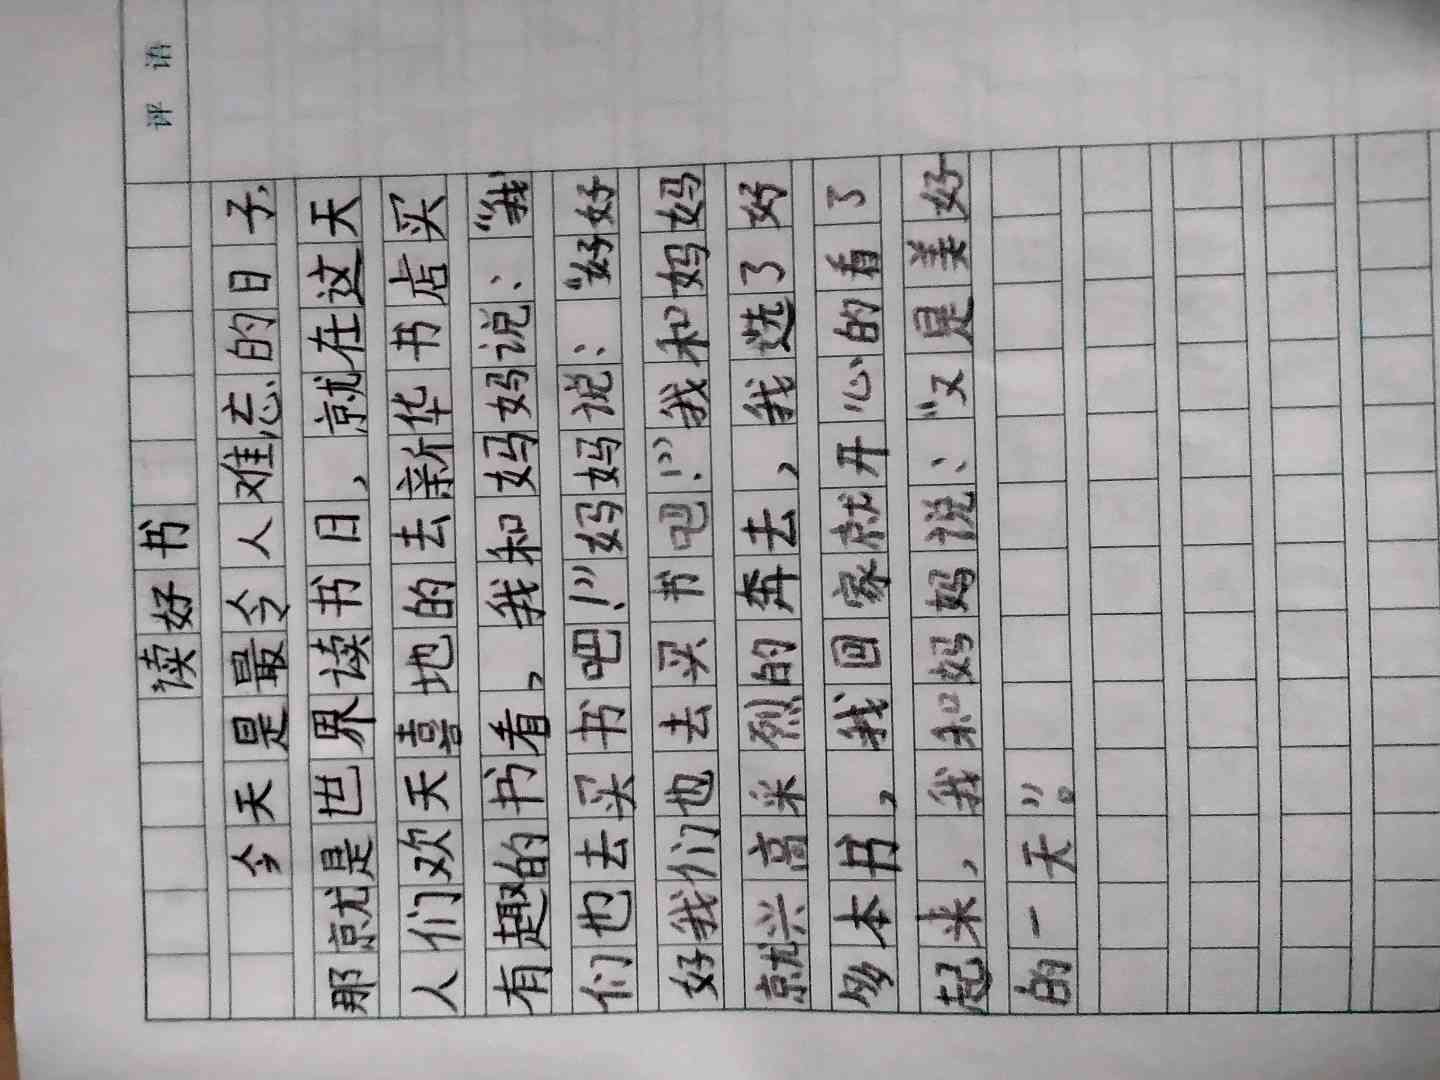 评 语
读好书
今天是最令人难忘的日子,
那就是世界读书日,就在这天
人们欢天喜地的去新华书店买
有趣的书看,我和妈妈说:“我
们也去买书吧!”妈妈说:“好好
好我们也去买书吧!”我和妈妈
就兴高采烈的奔去,我选了好
多本书,我回家就开心的看了
起来,我和妈妈说:“又是美好
的一天”。